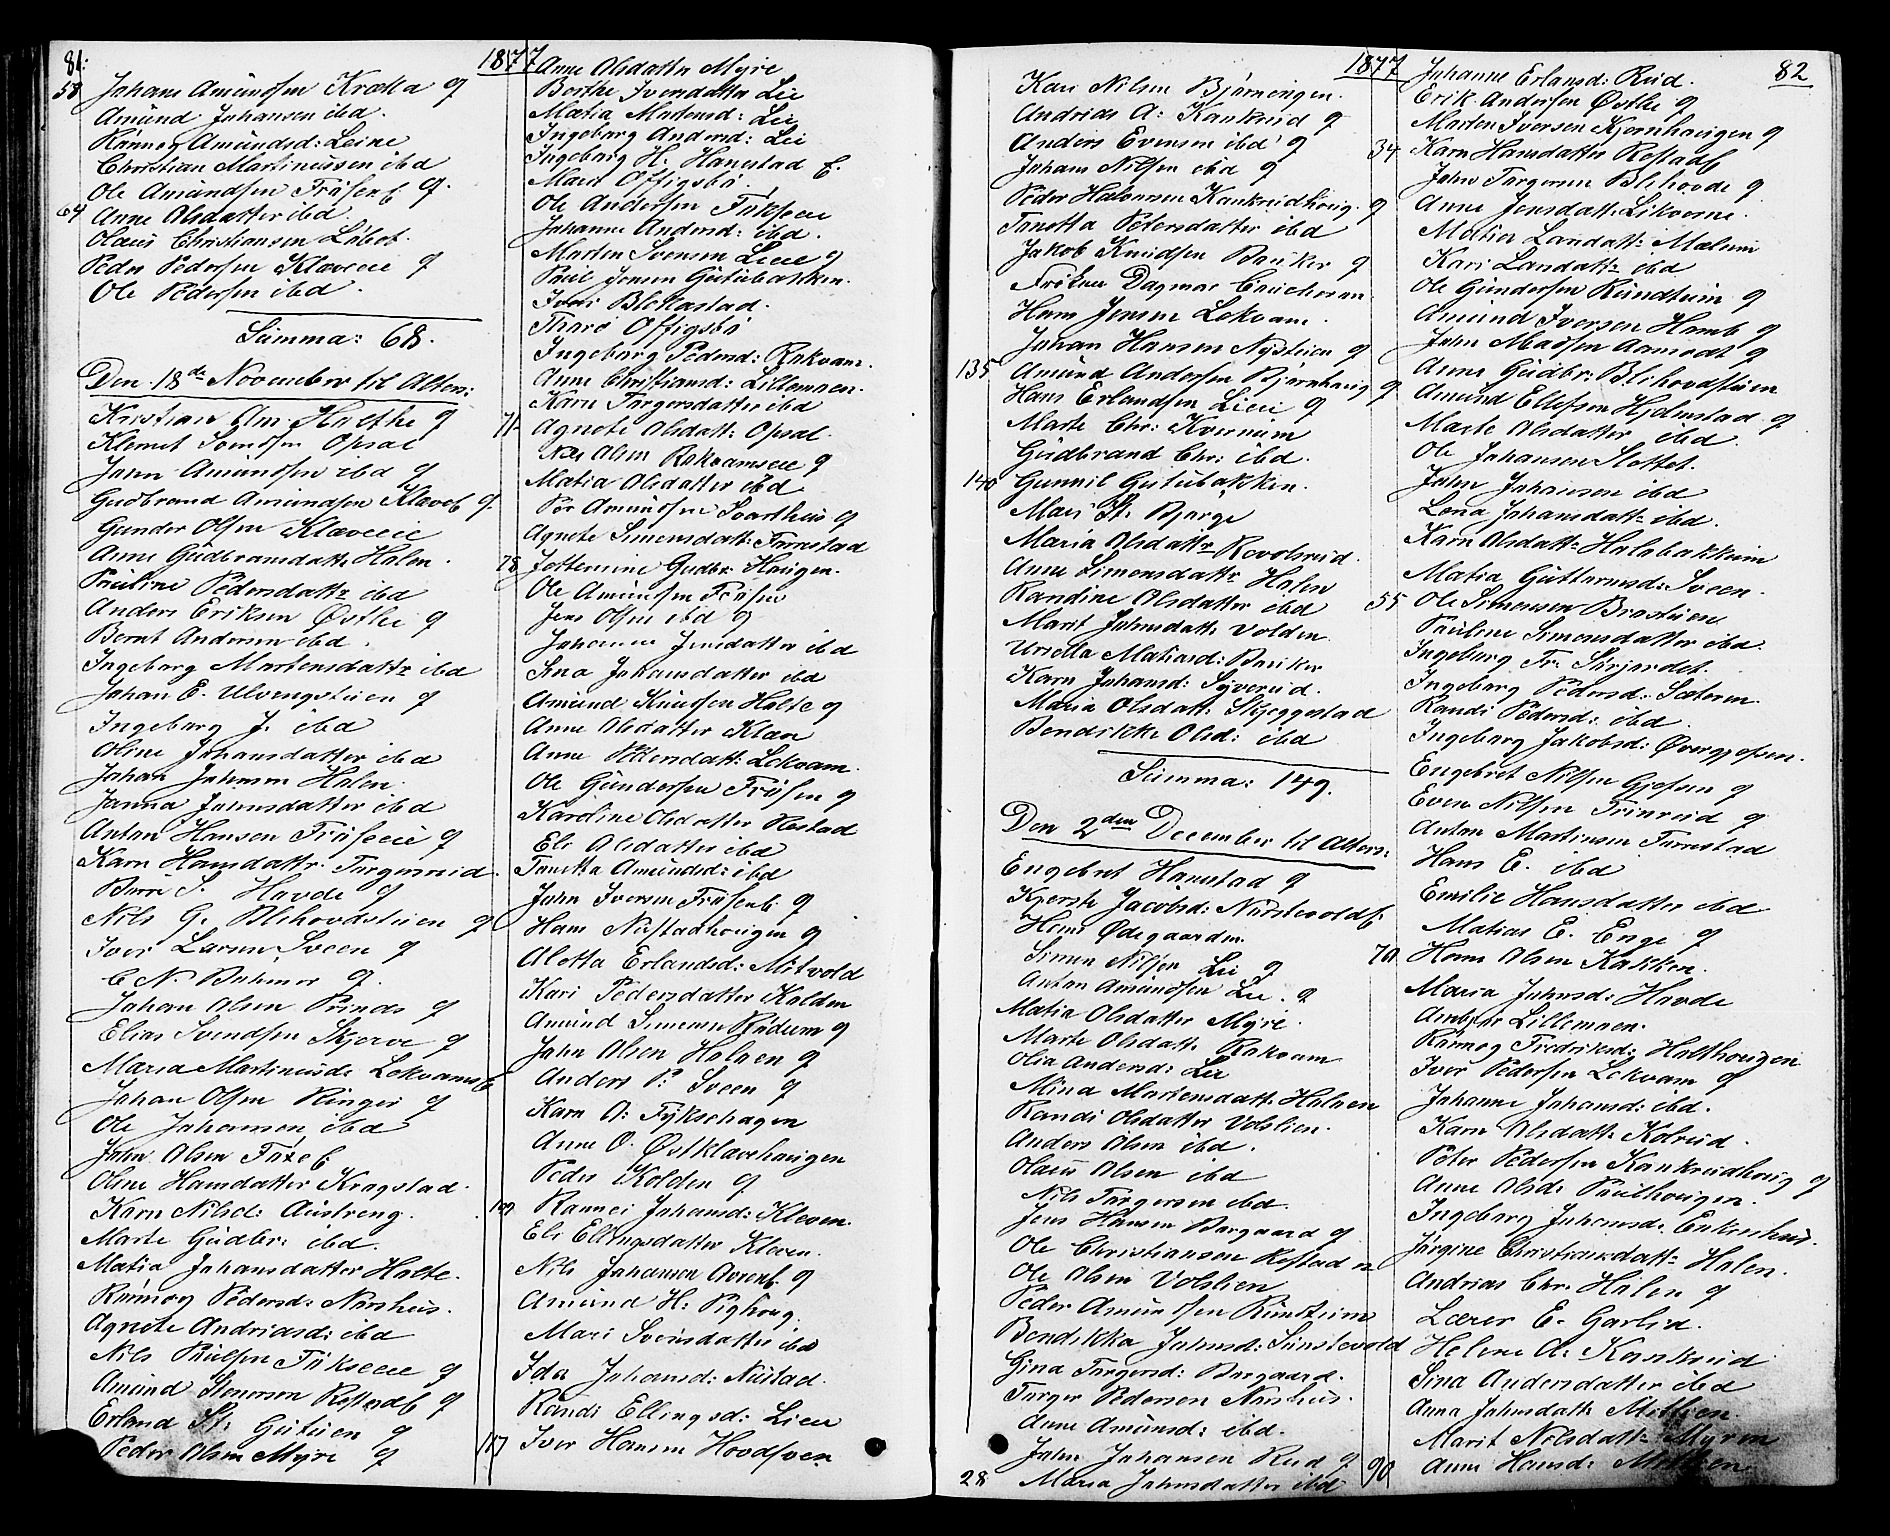 81.
1877
58 Johans Amundsen Kralla q
Amund Johansen ibd.
Rønnog Amundsd: Leine
Christian Martinussen ibd
Ole Amundsen Frøsenb q.
64 Anne Olsdatter ibd
Olaus Christiansen Løbet.
Peder Pedersen Klæveeie q
Ole Pedersen ibd.
Summa: 68.
Den 18de November til Alters:
Kristian Am. Holthe q
Klemet Svendsen Opsal
John Amundsen ibd q
Gudbrand Amundsen Klæveb q.
Gunder Olsen Klæveeie
Anne Gudbransdatt: Holen.
Pauline Pedersdatt: ibd
Anders Eriksen Østhe q
Bernt Andersen ibd.
Ingeborg Martensdatt: ibd
Johan E. Ulvengstuen q
Ingeborg J. ibd
Oline Johansdatter ibd
Johan Johnsen Holen.
Janna Johnsdatter ibd
Anton Hansen Frøseeie q
Karn Hansdattr Torgersrud.
S. Hovde q
Nils G. Blihovdstuen q
Iver Larsen Sveen q
C. N. q.
Johan Olsen Prinds q
Elias Svendsen Skjerve q
Maria Martinusd: Lekvamsb
Johan Olsen Ringer q
Ole Johansen ibd
John Olsen b
Oline Hansdatter Kragstad.
Karn Nilsd: Austreng.
Marte Gudbr: ibd.
Matia Johansdatter Holte.
Rønnog Pedersd: Narshus.
Agnete Andriasd: ibd
Nils Paulsen Fykseeie q
Amund Stenersen Rolstadb q
Erland St: Gutuen q
Peder Olsen Myre q
Anne Olsdatter Myre
Berthe Svensdatter Lie
Matia Martensd: Lie
Ingeborg Andersd: Lie
Ingeborg H. Hanestad E.
Marit Offigsbø.
Ole Andersen Fykseeie
Johanne Andersd: ibd.
Marten Svensen Lieie q
Paul Jonsen Gutubakken.
Iver Blekastad.
Thorø Offigsbø
Ingeborg Pedersd: Rokvam.
Anne Christiansd: Lillemoen.
Karn Torgersdatter ibd
71 Agnete Olsdatt: Opsal.
Nils Olsen Rokvamseie q
Matia Olsdatter ibd
Per Amundsen Svarthus q
Agnete Simensdatt: Furrestad
78 Jettemine Gudbr: Haugen.
Ole Amundsen Frøsen
Jens Olsen ibd q
Johanne Jensdatter ibd
Sina Johansdatter ibd
Amund Knudsen Holte q
Anne Olsdatter Klæn
Anne Pedersdatt: Lekvam.
Ole Gundersen Frøsen q
Karoline Olsdatter Nestad
Eli Olsdatter ibd
Tonetta Amundsd: ibd
John Iversen Frøsenb. q
Hans Nustadhougen q
Aletta Erlandsd: Mitvold
Kari Pedersdatter Kolden
Amund Simensen Rudum q
John Olsen Holaen q
Anders P. Sveen q
Karn A: Fykschagen
Anne O. Østklævehaugen
Peder Kolden q
109 Rønnei Johansd: Kleven.
Eli Ellingsdatter Kleven.
Nils Johansen q
Amund H: Pighoug.
Mari Svensdatter ibd
Ida Johansd: Nustad.
Randi Ellingsd: Lieie
117 Iver Hansen Hovdsven
82
1877
Kari Nilsen Bjørneengen.
Andrias A: Kankrud q
Anders Evensen ibd q
Johans Nilsen ibd q
Peder Halvorsen Kankrudhoug. q
Tonetta Petersdatter ibd
Jakob Knudsen Bruker q
Frøken Dagmar
Hans Jensen Lekvam.
Johan Hansen Nystuen q
135 Amund Andersen Bjørnhaug q
Hans Erlandsen Lieie q
Marte Chr: Kvernum
Gudbrand Chr: ibd.
140 Gunnil Gutubakken.
Mari St. Bjørge
Maria Olsdattr Rovolsrud.
Anne Simensdattr Holen
Randine Olsdatter ibd
Marit Johnsdatt: Volden.
Ursella Matiasd: Bruker
Karn Johansd: Syverud.
Maria Olsdatt: Skjeggestad
Bendikke Olsd: ibd
Summa: 149.
Den 2den December til Alters:
Engebret Hanestad q
Kjersti Jacobsd: Nurslevoldb.
Hans Ødegaarden.
Simen Nilsen Lie q
Anton Amundsen Lie. q
Matia Olsdatter Myre.
Marte Olsdatt: Rokvam
Olia Andersd: Lie
Mina Martensdatt: Holaen
Randi Olsdatter Volslien.
Anders Olsen ibd.
Olaus Olsen ibd
Nils Torgersen ibd.
Jens Hansen Borgaard q
Ole Christiansen Rolstad
Ole Olsen Volslien
Peder Amundsen Rundtuene
Bendikka Johnsd: Sunslevold
Gina Torgersd: Borgaard.
Torger Pedersen Narshus.
Anne Amunsd: ibd.
John Johansen Rud q
28 Maria Johnsdatter ibd
Johanne Erlansd: Rud.
Erik Andersen Østhe q
Marten Iversen Kjernhaugen q
34 Karn Hansdatter Rolstadb
John Torgersen Blihovde q
Anne Jensdatt: Likverne.
Matia Larsdatt: Mælum
Kari Larsdattr ibd
Ole Gundersen Rundtuin q
Amund Iversen Hamb q
John Madsen Aamodt q
Anne Gudbr: Blihovdstuen
Amund Ellefsen Hjelmstad q
Marte Olsdatter ibd.
Ole Johansen Slottet.
John Johansen ibd
Lena Johansdatt: ibd.
Karn Olsdatt: Holabakkum
Matia Guttormsd: Sveen.
55 Ole Simensen Brostuen
Pauline Simensdatter ibd.
Ingeborg Tr: Skrjordet.
Ingeborg Pedersd: Sæteren.
Randi Pedersd: ibd.
Ingeborg Jakobsd: Øvergjefsen.
Engebret Nilsen Gjefsen q
Even Nilsen Trinrud q
Anton Martinsen Furrestad
Hans E. ibd
Emilie Hansdatter ibd
Matias E. Enge q
70 Hans Olsen Kakken.
Maria Johnsd: Hovde
Lillemoen.
Rønnog Fredriksd: Holthougen
Iver Pedersen Lekvam q
Johanne Johansd: ibd.
Karn Olsdatt: Kolrud.
Peter Pedersen Kankrudhoug q
Anne Olsd: Paulhougen.
Ingeborg Johansd: Enkershus.
Jørgine Christiansdatt: Holen.
Andrias Chr. Holen q
Lærer E. Garlid.
Helene A: Kankrud
Sina Andersdatter ibd
Anna Johnsdatt: Millien.
Marit Nilsdatt: Myren
90 Anne Hansd: Millien